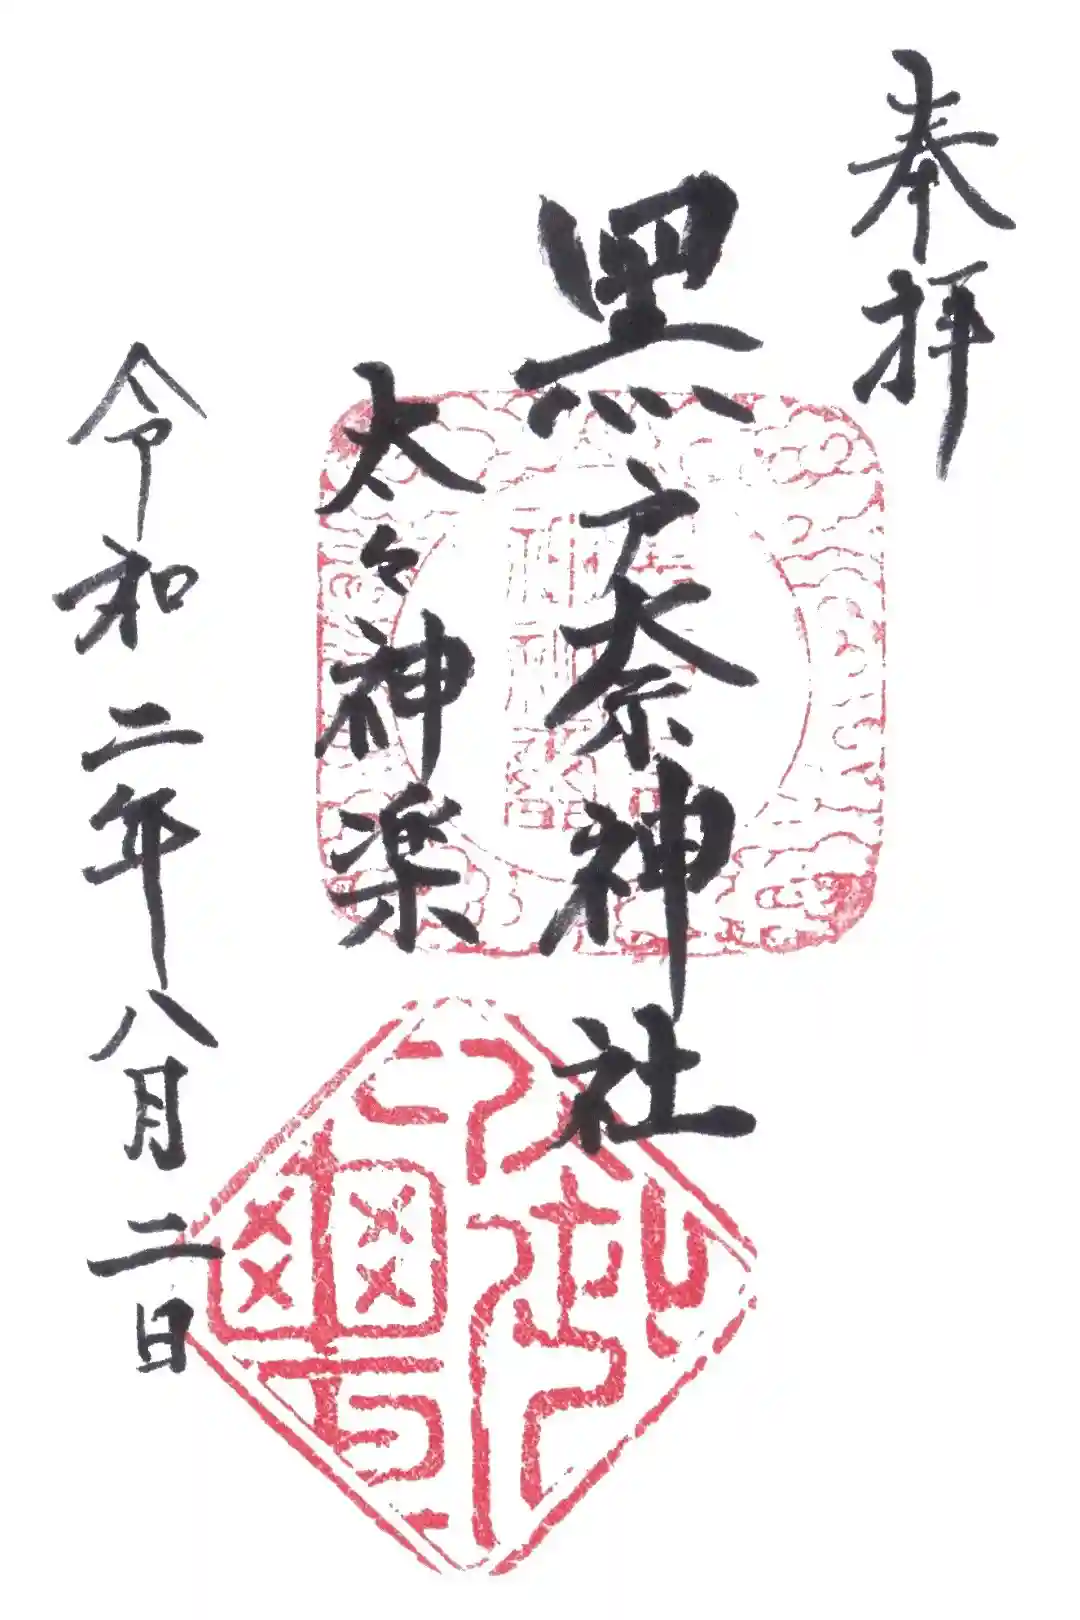 奉拝
黑戸奈神社
太々神楽
令和二年八月二日